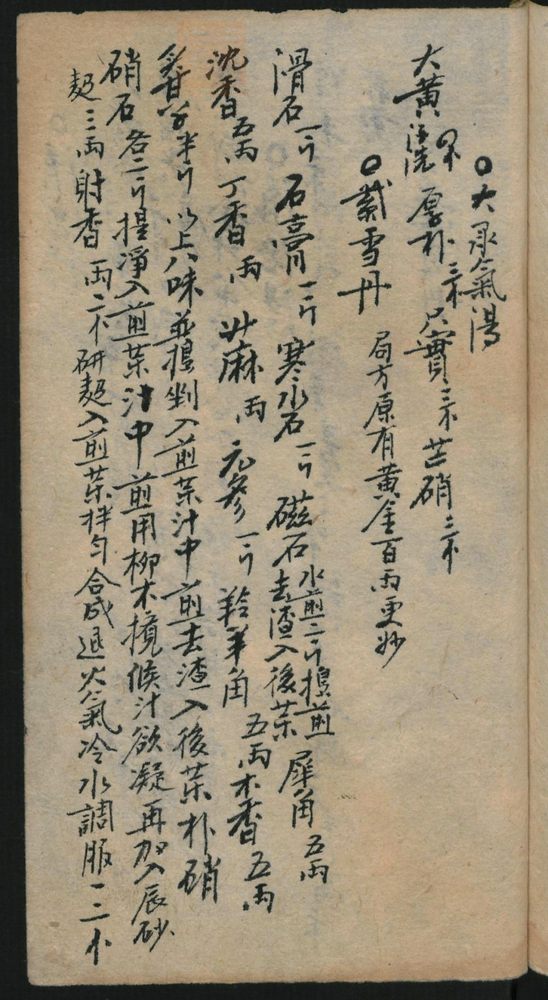 大承氣湯
大黃 洗 厚朴 三 只實 三 芒硝 三
紫雪丹 局方原有黃金百両更妙
滑石一斤 石膏一斤 寒水石一斤 磁石 水煎二斤搗煎去渣入後藥 犀角五両
沈香五両 丁香一両 升麻一両 元參一斤 羚羊角五両 木香五両
炙甘草半斤 以上八味並搗剉入前藥汁中煎去渣入後藥 朴硝
硝石各二斤 提凈入前藥汁中煎用柳木攪候汁欲凝再加入辰砂
三両 射香一両二 研入前藥拌勻合成退火氣冷水調服一二